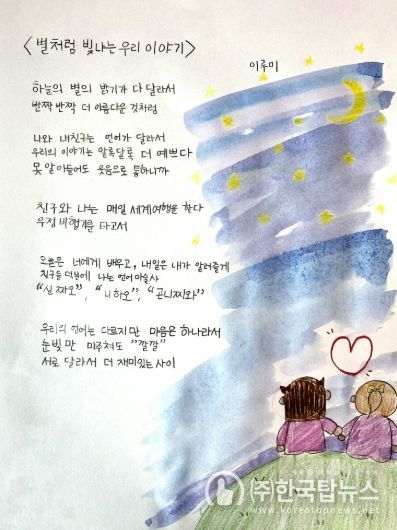 <별처럼 빛나는 우리 이야기>
이루미
하늘의 별의 밝기가 다 달라서
반짝 반짝 더 아름다운 것처럼
나와 내친구는 언어가 달라서
우리의 이야기는 알록달록 더 예쁘다
못 알아들어도 웃음으로 통하니까
친구와 나는 매일 세계여행을 한다
우정 비행기를 타고서
오늘은 너에게 배우고, 내일은 내가 알려줄게
친구들 덕분에 나는 언어마술사
"신짜오", "니하오", "곤니찌와"
우리의 언어는 다르지만 마음은 하나라서
눈빛만 마주쳐도 "깔깔"
서로 달라서 더 재미있는 사이
(주)한국탑뉴스
www.koreatopnews.net